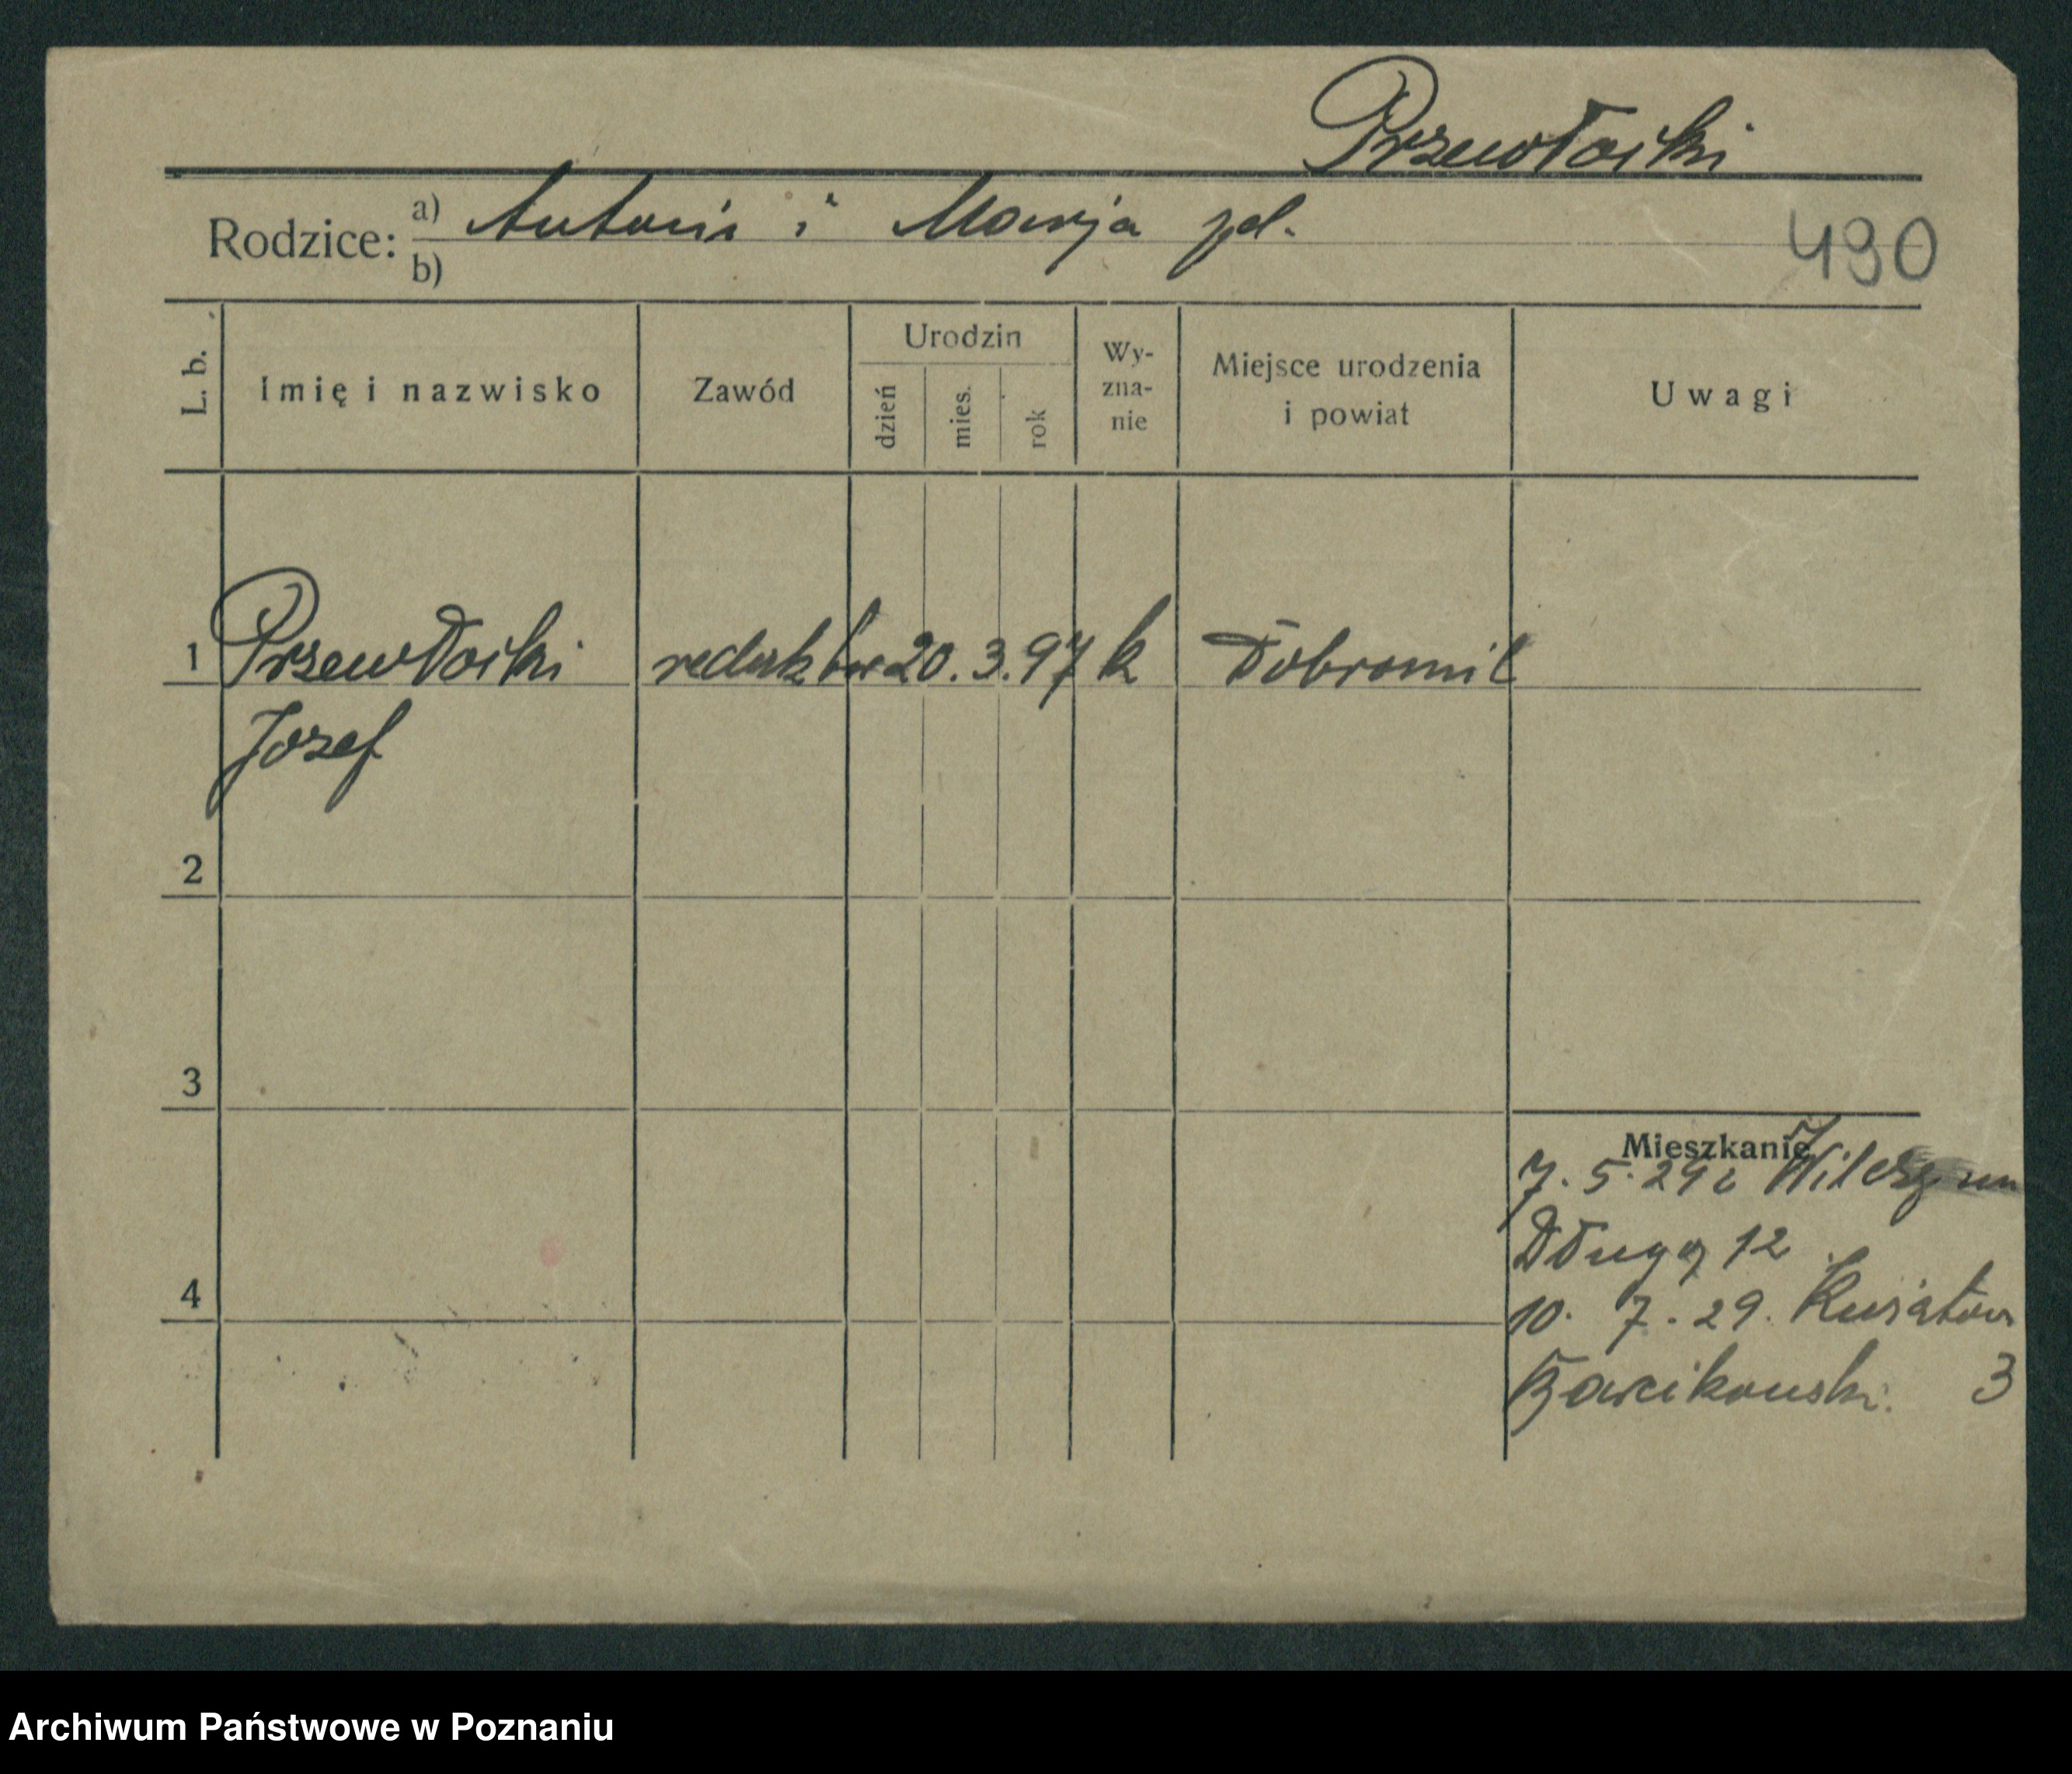 Przewłocki
Rodzice: a) Antoni i Marja zd.
b)
490
L. b. Imię i nazwisko Zawód Urodzin dzień mies. rok Wy-zna-nie Miejsce urodzenia i powiat Uwagi
1 Przewłocki redaktor 20. 3. 97 k Dobromil
Józef
2
3
Mieszkanie
7. 5. 29 z
Długa 12
4
10. 7. 29.
3
Archiwum Państwowe w Poznaniu